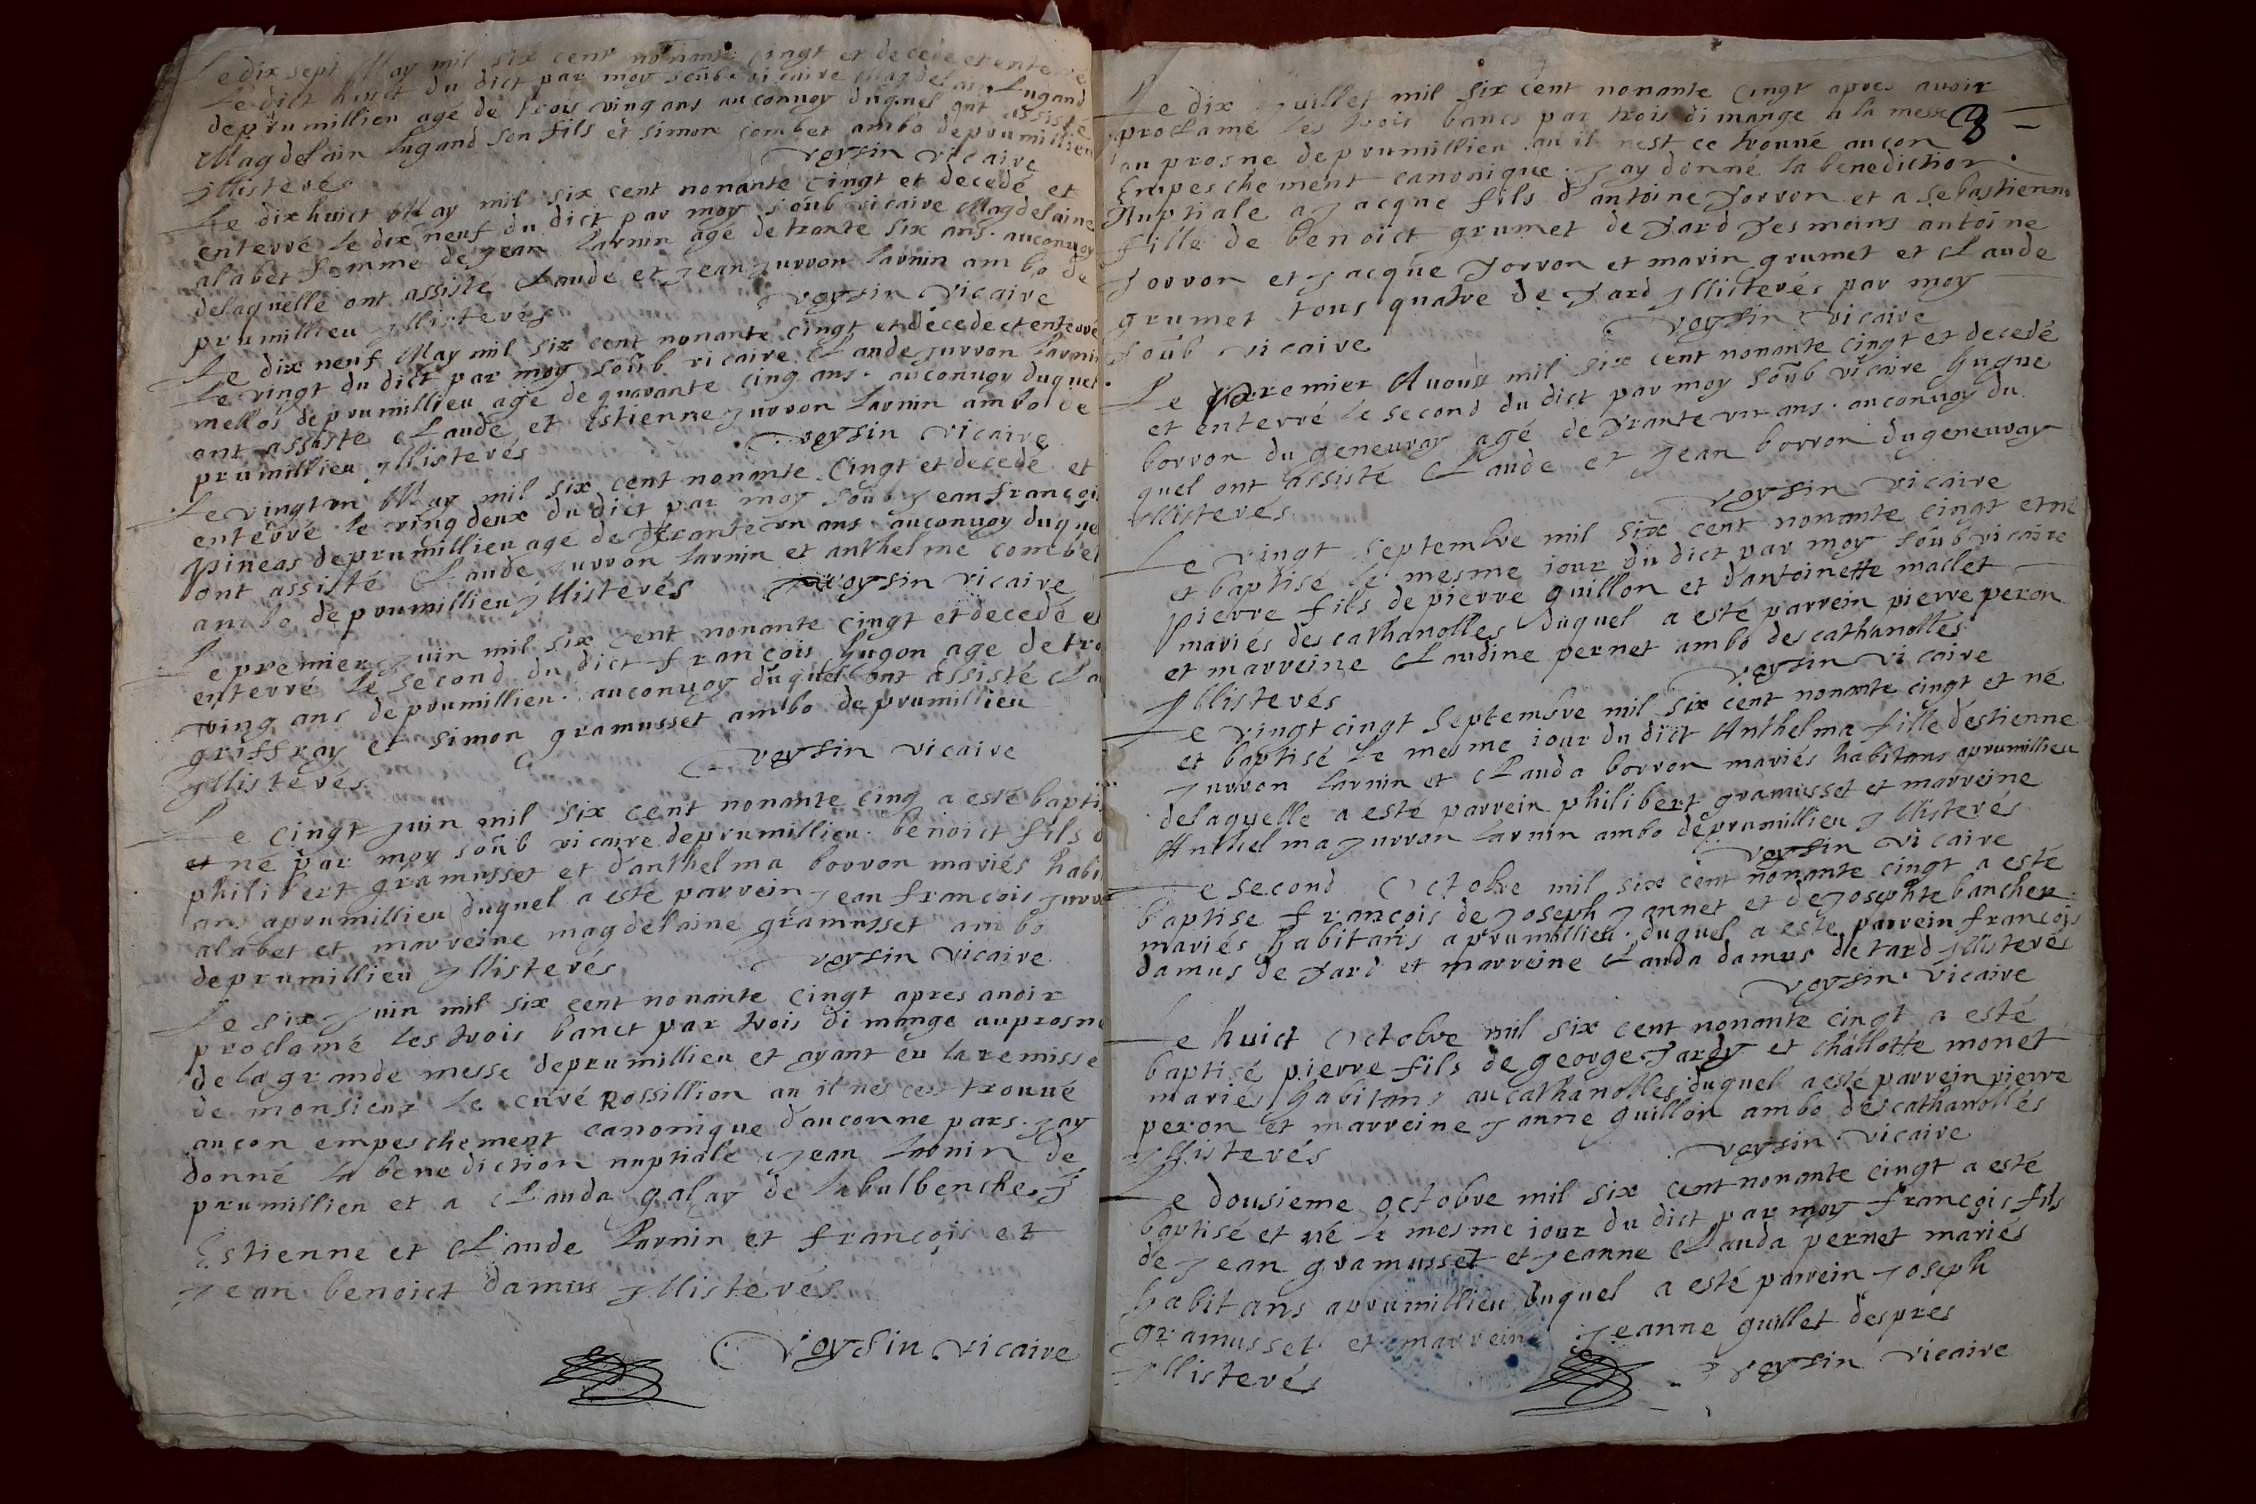 Le dix sept May mil six cent nonante cingt et decede et enterre
Le dict huict du dict par moy soub vicaire Magdelain Lugand
deprumillieu agé de trois ving ans auconvoy duquel ont assisté
Magdelain lugand son fils et simon combet ambo deprumillieu
Jllisterés voysin vicaire
Le dixhuict May mil six cent nonante cingt et decedé et
enterré le dix neuf du dict par moy soub vicaire Magdelaine
alabet femme de Jean Larnin agé detrante six ans. auconvoy
delaquelle ont assisté Claude et Jean Jurron Larnin ambo de
prumillieu Jllisterés voysin vicaire
Le dix neuf May mil six cent nonante cingt et decede et enterré
Le vingt du dict par moy soub vicaire Claude Jurron Larnin
mellos deprumillieu agé de quarante cinq ans. auconvoy duquel
ont assisté Claude et Estienne Jurron Larnin ambo de
prumillieu Jllisterés voysin vicaire
Le vingt un May mil six cent nonante cingt et decedé et
enterré le ving deux du dict par moy soub Jean françois
pineas deprumillieu agé de trante un ans. auconvoy duque
ont assisté Claude Jurron Larnin et anthelme combet
ambo deprumillieu Jllisterés voysin vicaire
Le premier Juin mil six cent nonante cingt et decedé et
enterré le second du dict françois hugon age de tro
ving ans deprumillieu. auconvoy duquel ont assisté Cla
griffray et simon gramusset ambo deprumillieu
Jllisterés voysin vicaire
Le cingt Juin mil six cent nonante cinq a esté bapti
et né par moy soub vicaire deprumillieu. benoict fils d
philibert gramusset et d'anthelma borron mariés habi
ans aprumillieu duquel a esté parrein Jean françois Jurro
alabet et marreine magdelaine gramusset ambo
deprumillieu Jllisterés voysin vicaire
Le six Juin mil six cent nonante cingt apres avoir
proclamé les trois banct par trois dimange auprosne
de la grande messe deprumillieu et ayant eu la remisse
de monsieur le curé Rossillion au il nes ces trouué
aucon empeschement canonique d'auconne pars. Jay
donné la benediction nuptiale a Jean Larnin de
prumillieu et a Clauda galay de labulbenche. J
Estienne et Claude Larnin et françois et
Jean benoict damus Jllisterés
Voysin vicaire
8
Le dix Juillet mil six cent nonante cingt apres avoir
proclamé les trois bancs par trois dimange a la messe
au prosne deprumillieu au il nest ce trouué aucon
Empeschement canonique. Jay donné la benediction
Nuptiale a Jacque fils d'antoine Jorron et a sebastienne
fille de benoict grumet de Jard Jesmoins antoine
Jorron et Jacque Jorron et marin grumet et Claude
grumet tous quatre de Jard Jllisterés par moy
soub vicaire voysin vicaire
Le premier Avoust mil six cent nonante cingt et decedé
et enterré le second du dict par moy soub vicaire hugue
borron du geneuray agé de trante un ans. auconvoy du
quel ont assisté Claude et Jean borron dugeneuray
Jllisteres voysin vicaire
Le vingt septembre mil six cent nonante cingt et né
et baptisé le mesme iour du dict par moy soub vicaire
pierre fils de pierre guillon et d'antoinette maclet
mariés des cathanolles duquel a esté parrein pierre peron
et marreine Claudine pernet ambo des cathanolles
Jllisterés voysin vicaire
Le vingt cingt septembre mil six cent nonante cingt et né
et baptisé le mesme iour du dict Anthelma fille d'estienne
Jurron Larnin et Clauda borron mariés habitans aprumillieu
delaquelle a esté parrein philibert gramusset et marreine
Anthelma Jurron Larnin ambo deprumillieu Jllisterés
voysin vicaire
Le second Octobre mil six cent nonante cingt a esté
baptise françois de Joseph Jannet et de Josephte bancher
mariés habitans aprumillieu. duquel a este parrein françois
damus de Jard et marreine Clauda damus de tard Jllisterés
voysin vicaire
Le huict Octobre mil six cent nonante cingt a esté
baptisé pierre fils de george Jardy et challotte monet
mariés habitans au cathanolles duquel a esté parrein pierre
peron et marreine Janne guillon ambo des cathanolles
Jllisterés voysin vicaire
Le dousieme octobre mil six cent nonante cingt a esté
baptisé et né le mesme iour du dict par moy françois fils
de Jean gramusset et Jeanne Clauda pernet mariés
habitans aprumillieu duquel a esté parrein Joseph
gramusset et marreine Jeanne guillet despres
Jllisterés voysin vicaire